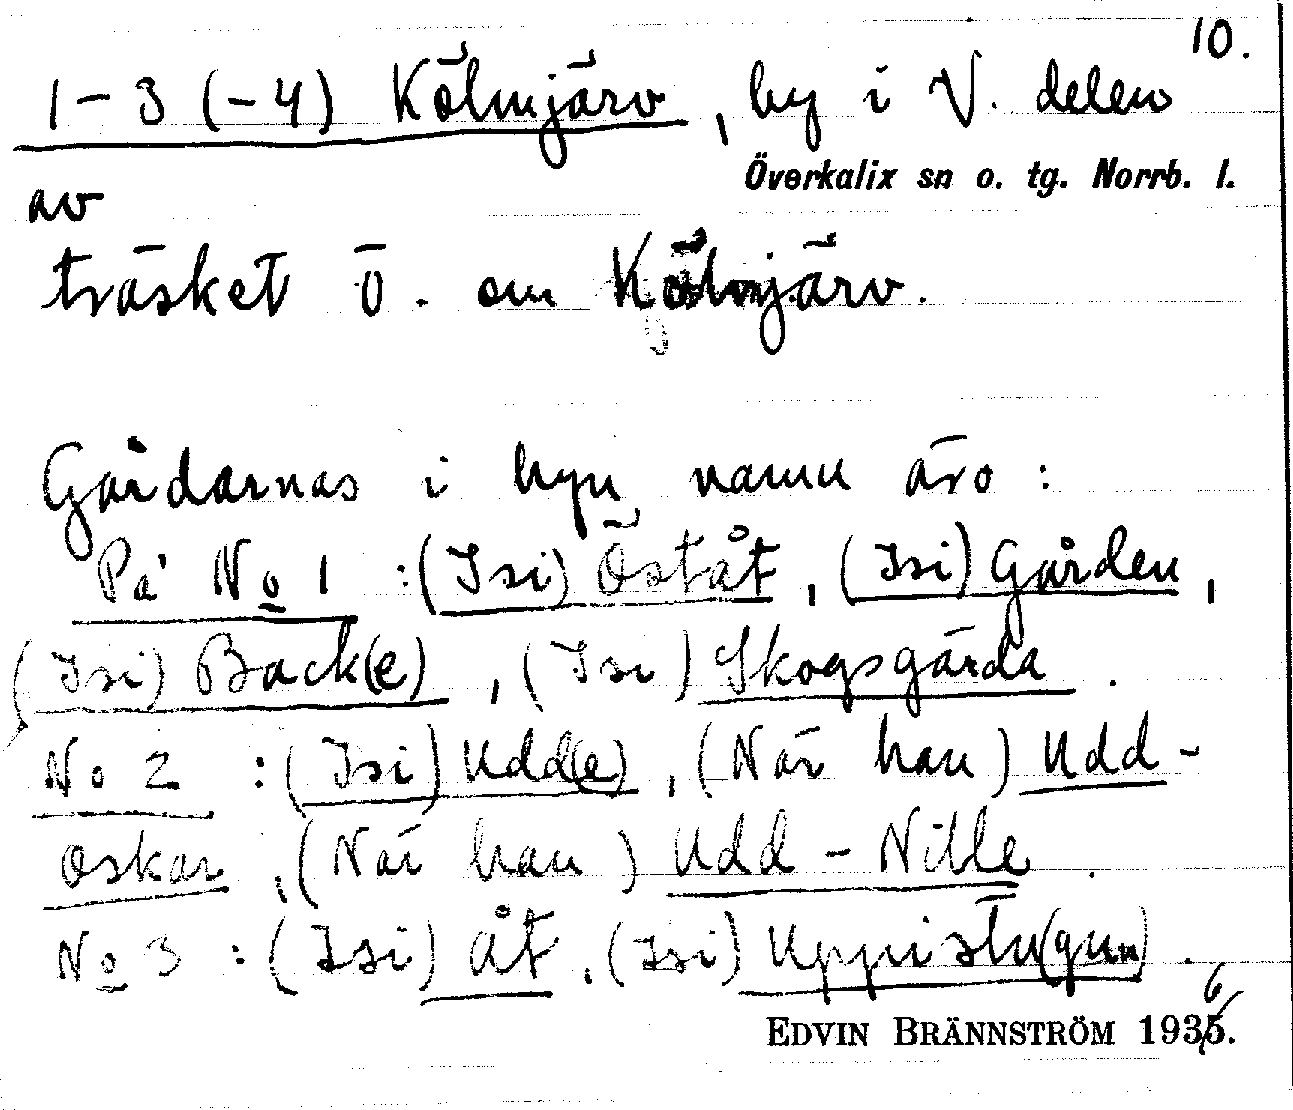 10.
1-3 (-4) Kölmjärv, by i V. delen
Överkalix sn o. tg. Norrb. l.
av
träsket Ö. om Kölmjärv.
Gårdarnas i byn namn äro:
På No 1 : (Isi) Öståt, (Isi) Gården,
(Isi) Back(e), (Isi) Skogsgärda.
No 2 : (Isi) Udd(e), (När han) Udd-
Oskar, (När han) Udd-Nille.
No 3 : (Isi) Åt, (Isi) Uppistu(gun).
EDVIN BRÄNNSTRÖM 1936.